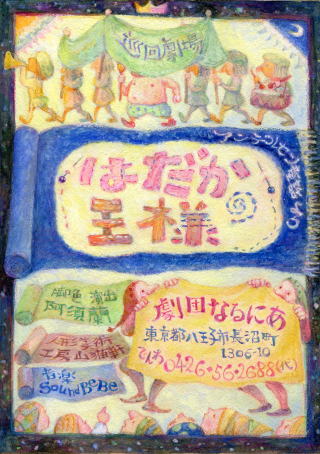 巡回劇場
アンデルセン童話より
はだか
王様
脚色 演出
阿須蘭
人形美術
工房 山猫軒
音楽
SOUNDBEBE
劇団なるにあ
東京都八王子市長沼町
1306-10
でんわ 0426・56・2688(代)